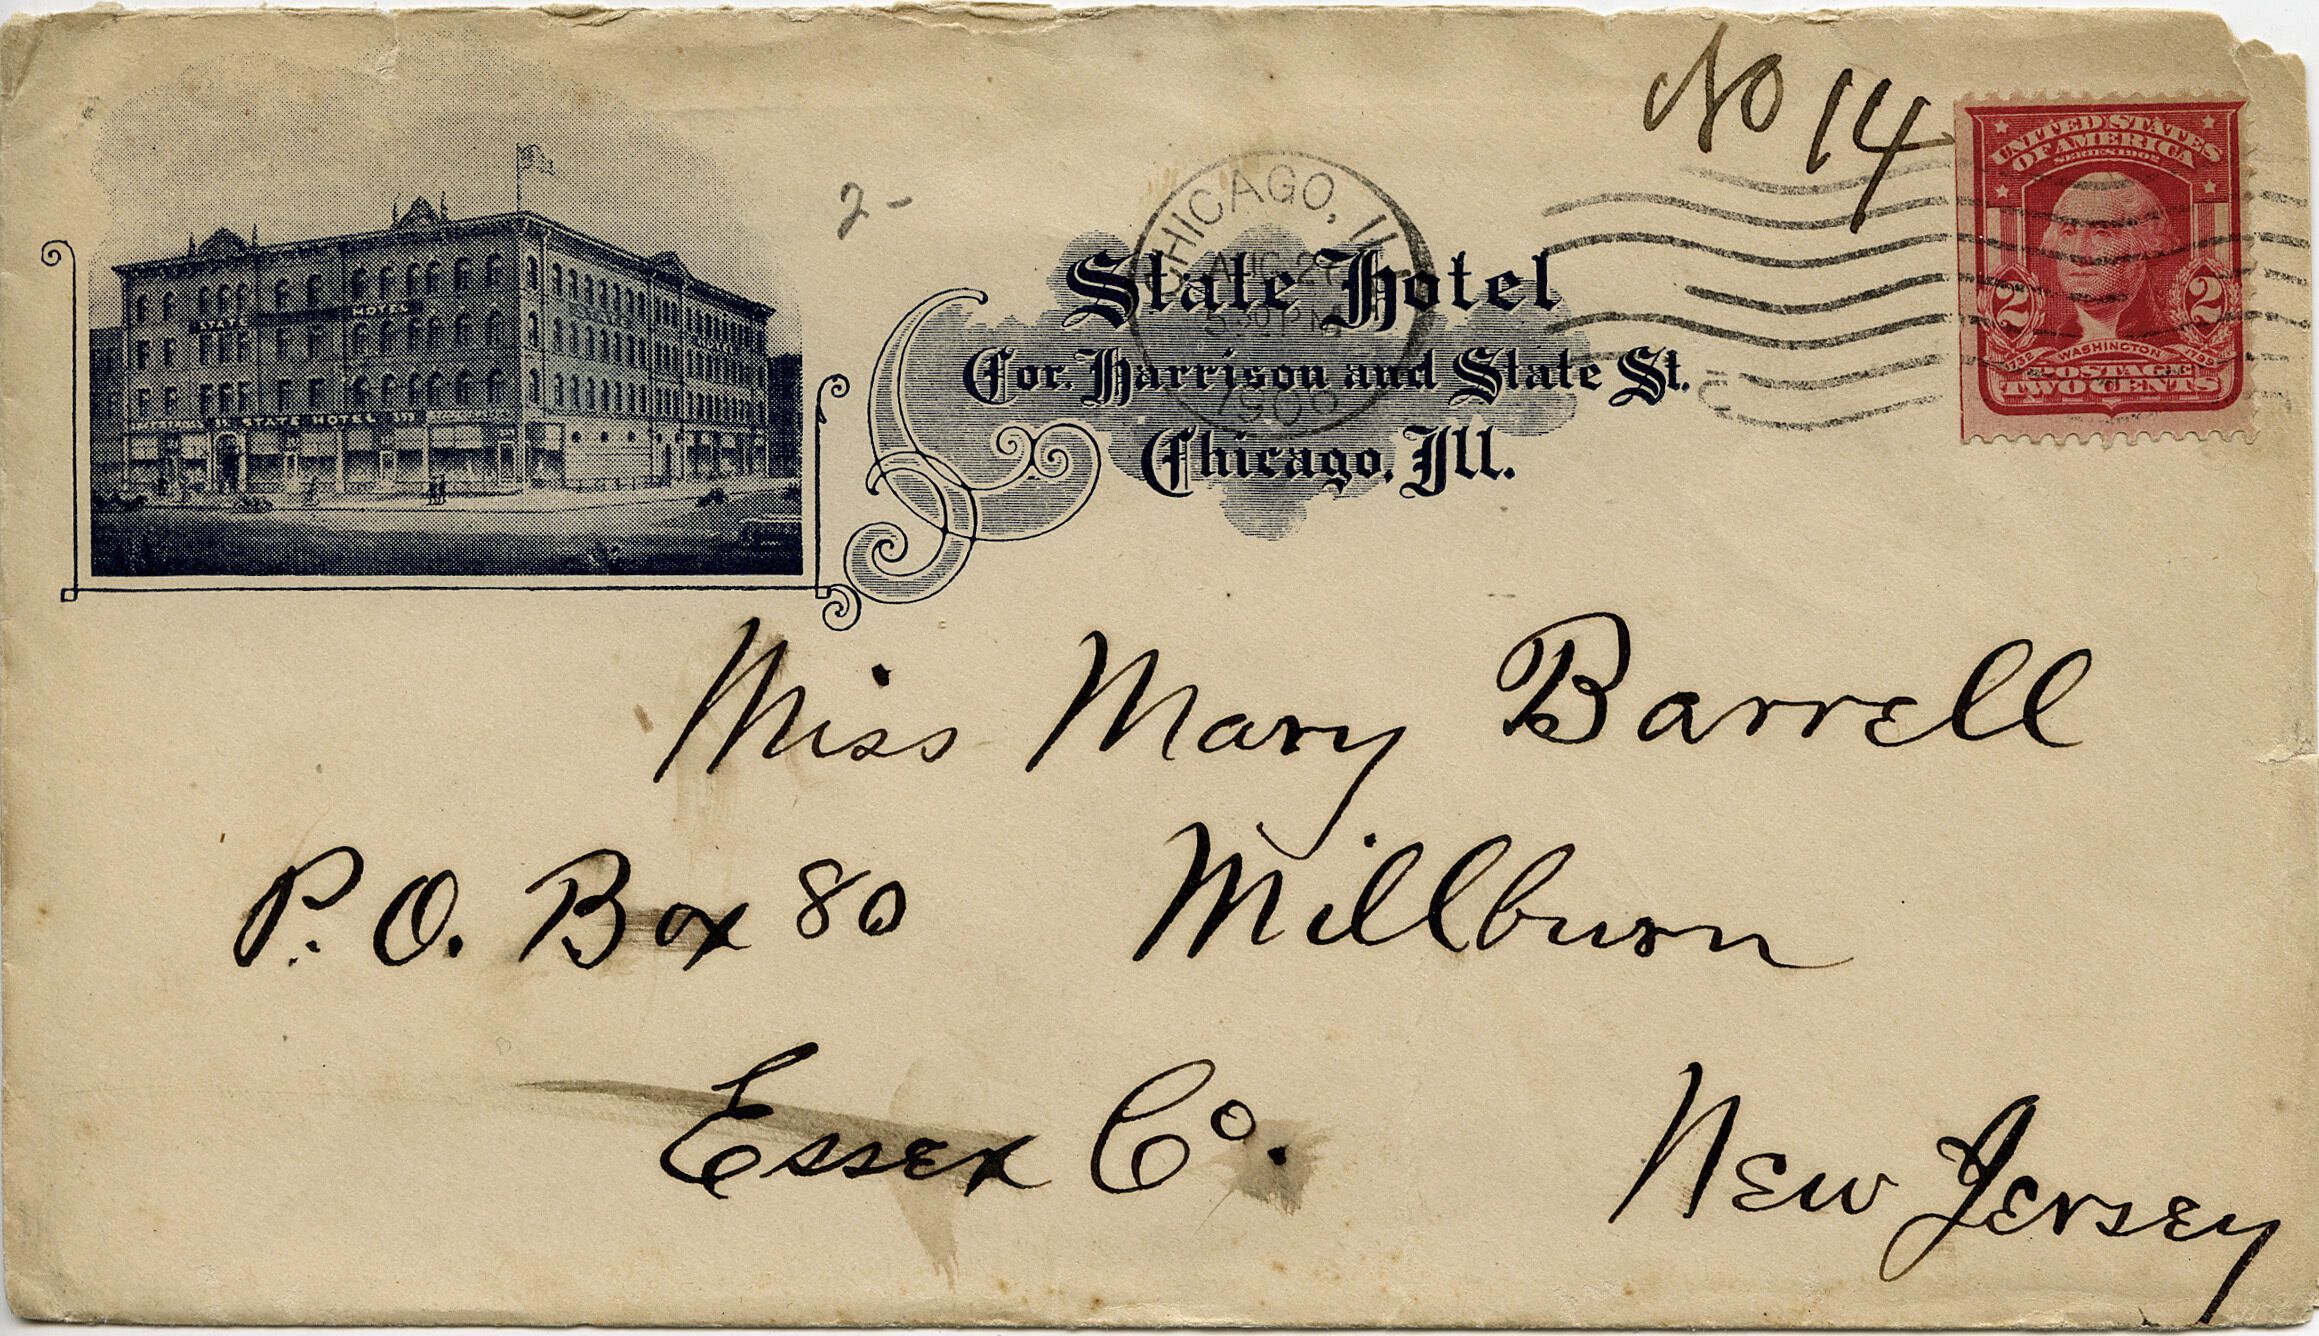 No 14
UNITED STATES
OF AMERICA
SERIES 1902
2 2
1732 WASHINGTON 1799
POSTAGE
TWO CENTS
2-
CHICAGO, ILL.
AUG 27
30 PM
1906
State Hotel
Cor. Harrison and State St.
Chicago, Ill.
STATE HOTEL
STATE HOTEL
Miss Mary Barrell
P. O. Box 80 Millburn
Essex Co. New Jersey